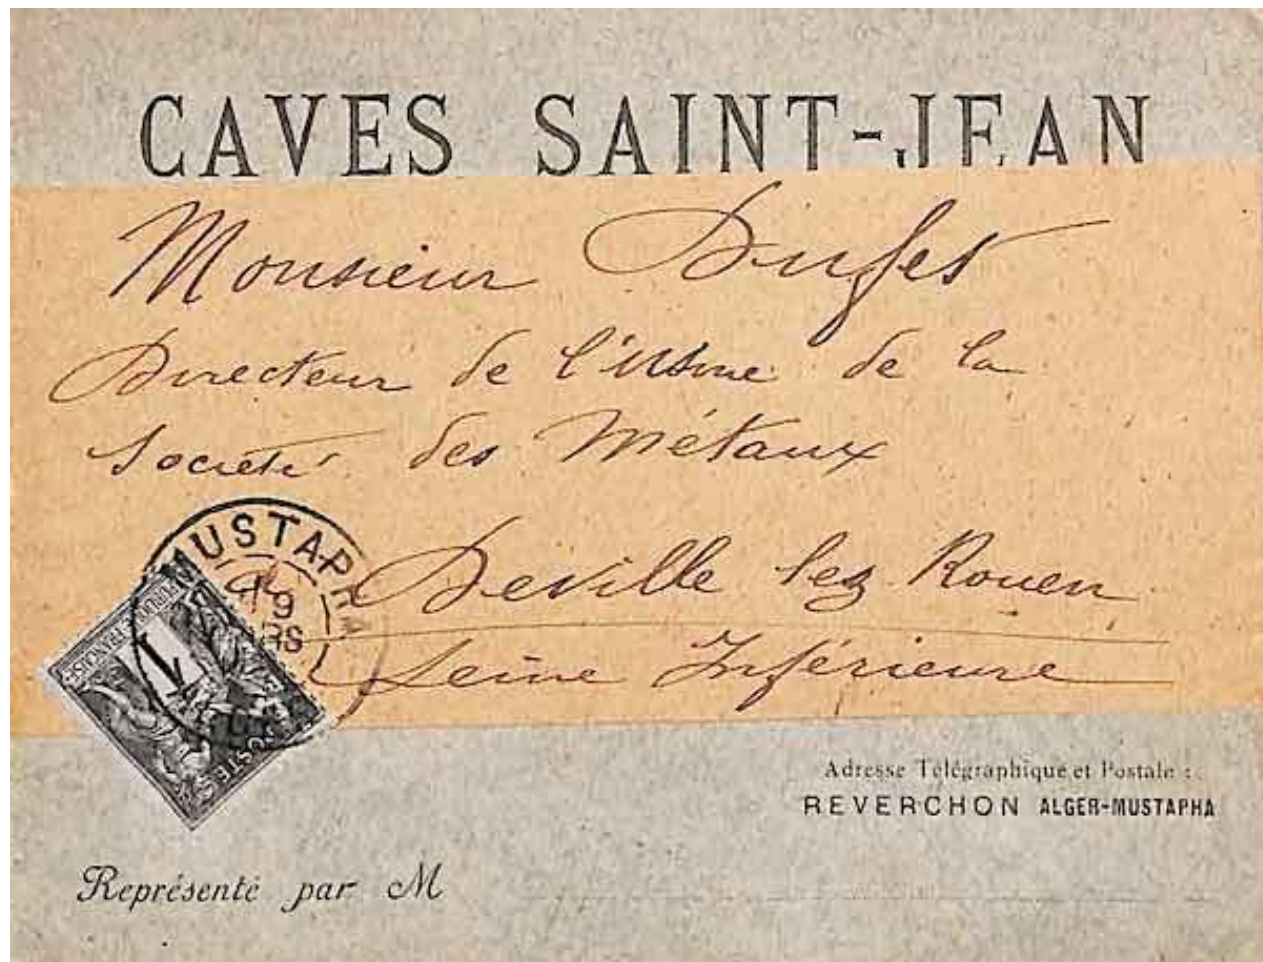 CAVES SAINT-JEAN
Monsieur
Directeur de l'usine de la
Société des Métaux
Deville lez Rouen
Seine Inférieure
MUSTAPH
19
RS
REPUBLIQUE FRANCAISE
1
POSTE
Adresse Télégraphique et Postale :
REVERCHON ALGER-MUSTAPHA
Représenté par M